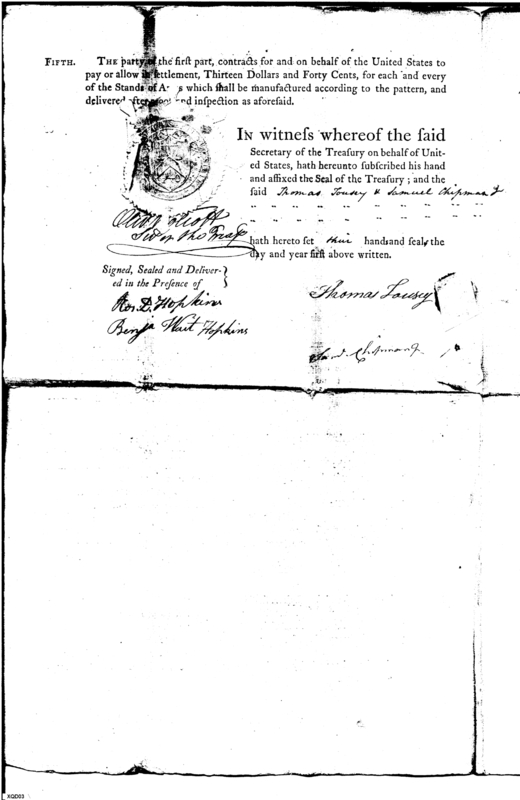 FIFTH. THE party of the first part, contracts for and on behalf of the United States to
pay or allow in settlement, Thirteen Dollars and Forty Cents, for each and every
of the Stands of A s which ſhall be manufactured according to the pattern, and
delivered after proof and inſpection as aforeſaid.
IN witneſs whereof the ſaid
Secretary of the Treaſury on behalf of Unit-
ed States, hath hereunto ſubſcribed his hand
and affixed the Seal of the Treaſury ; and the
ſaid Thomas Tousey & Samuel Chipman Jr
" " " " " " " "
" " " " " " " "
Secy of the Treasy
hath hereto ſet their hands and ſeals, the
day and year firſt above written.
Signed, Sealed and Deliver-
ed in the Preſence of
Ros. D. Hopkins
Benja Wait Hopkins
Thomas Tousey
Saml Chipman Jr
XQD03